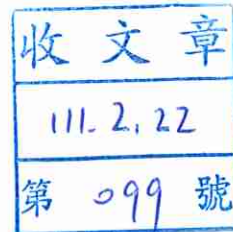 收文章
111.2.22
第 099 號